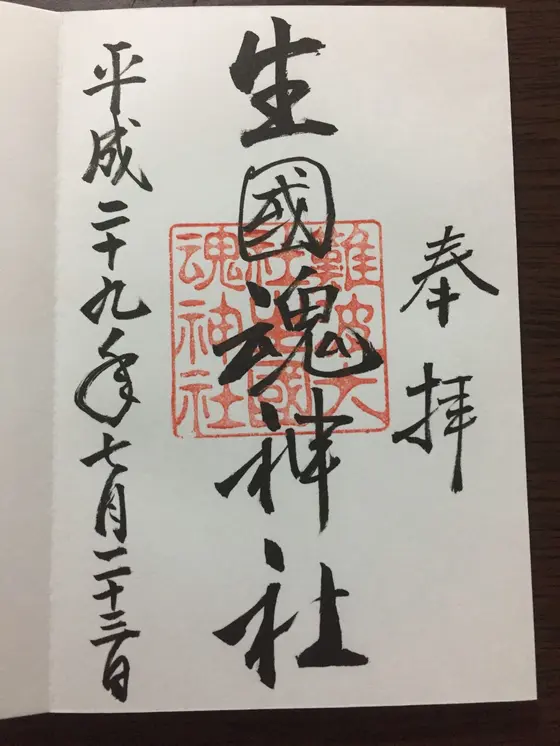 奉拝
生國魂神社
難波大
社生國
魂神社
平成二十九年七月二十三日